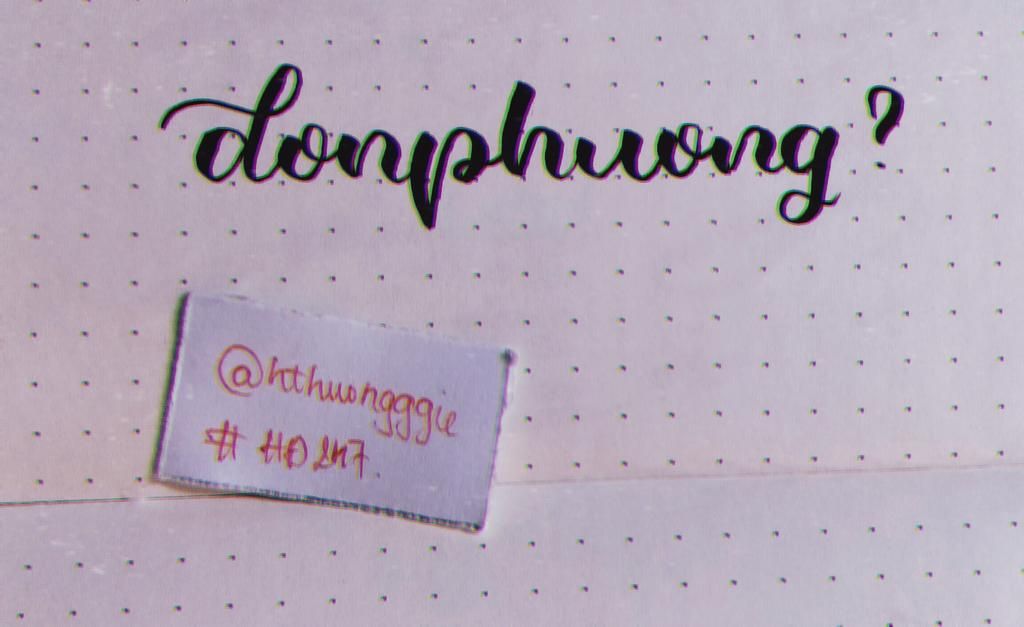 donphuong?
@hthuongggie
# HD247